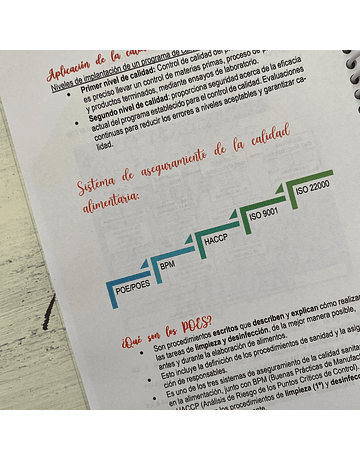 Aplicación de la
Niveles de implantación de un programa de
• Primer nivel de calidad: Control de calidad del
es preciso llevar un control de materias primas, proceso de
y productos terminados, mediante ensayos de laboratorio.
• Segundo nivel de calidad: proporciona seguridad acerca de la eficacia
actual del programa establecido para el control de calidad. Evaluaciones
continuas para reducir los errores a niveles aceptables y garantizar ca-
lidad.
Sistema de aseguramiento de la calidad
alimentaria:
POE/POES
BPM
HACCP
ISO 9001
ISO 22000
¿Qué son los POES?
• Son procedimientos escritos que describen y explican cómo realizar
las tareas de limpieza y desinfección, de la mejor manera posible,
antes y durante la elaboración de alimentos.
• Esto incluye la definición de los procedimientos de sanidad y la
ción de responsables.
• Es uno de los tres sistemas de aseguramiento de la calidad
en la alimentación, junto con BPM (Buenas Prácticas de
HACCP (Análisis de Riesgo de los Puntos Críticos de Control).
los procedimientos de limpieza (1º) y